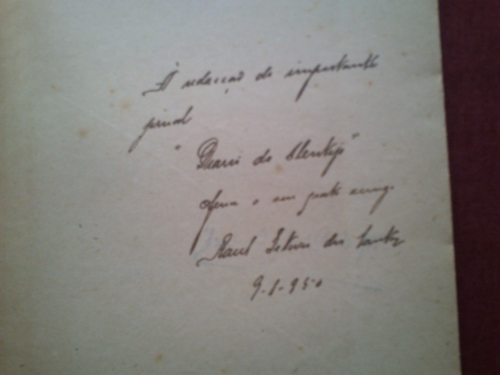 À redacção do importante
jornal
"Diario do Alentejo"
oferece o seu grato amigo
Raul dos Santos
9-1-950